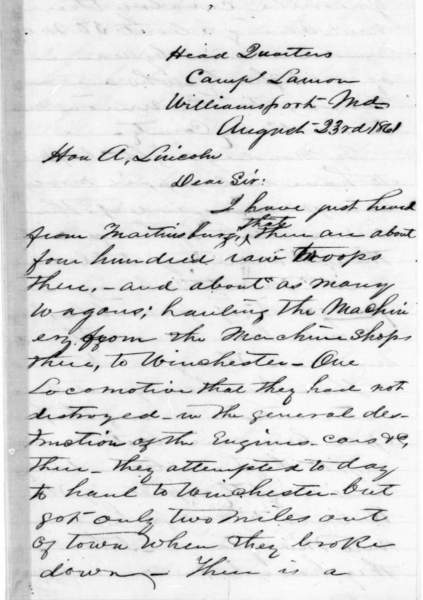 Head Quarters
Camp Lamon
Williamsport Md
August 23rd 1861
Hon A, Lincoln
Dear Sir:
I have just heard
from Martinsburg, that there are about
four hundred raw troops
there, - and about as many
wagons; hauling the Machin
ery from the Machine Shops
there, to Winchester - One
Locomotive that they have not
distroyed in the general des-
truction of the Engines - cars &c,
there - they attempted to day
to haul to Winchester - but
got only two miles out
of town when they broke
down - There is a